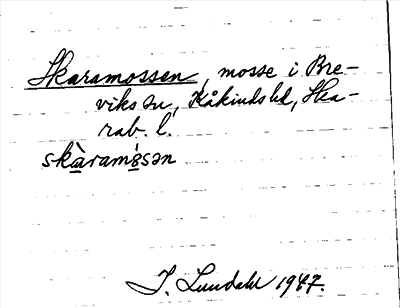 Skaramossen, mosse i Bre-
viks sn, Kåkinds hd, Ska-
rab. l.
skàramòsən
I. Lundahl 1947.